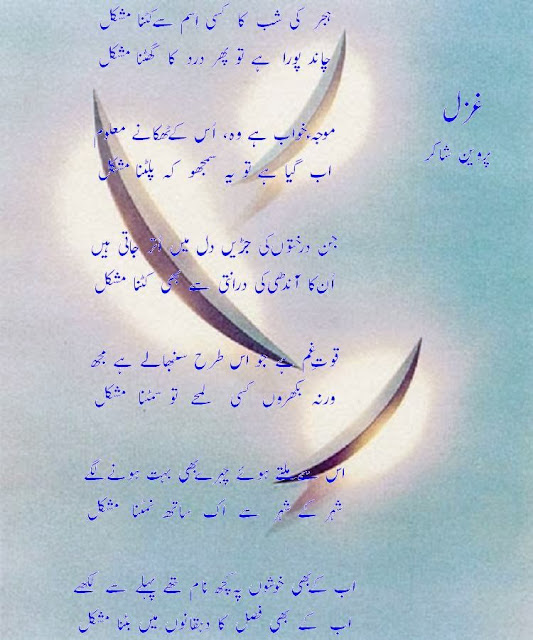 غزل
پروین شاکر
ہجر کی شب کا کسی اسم سے کٹنا مشکل
چاند پورا ہے تو پھر درد کا گھٹنا مشکل
موجہ خواب ہے وہ، اُس کے ٹھکانے معلوم
اب گیا ہے تو یہ سمجھو کہ پلٹنا مشکل
جن درختوں کی جڑیں دل میں اتر جاتی ہیں
اُن کا آندھی کی درانتی سے بھی کٹنا مشکل
قوتِ غم ہے جو اس طرح سنبھالے ہے مجھ
ورنہ بکھروں کسی لمحے تو سمٹنا مشکل
اس سے ملتے ہوئے چہرے بھی بہت ہونے لگے
شہر کے شہر سے اک ساتھ نمٹنا مشکل
اب کے بھی خوشوں پہ کچھ نام تھے پہلے سے لکھے
اب کے بھی فصل کا دہقانوں میں بٹنا مشکل